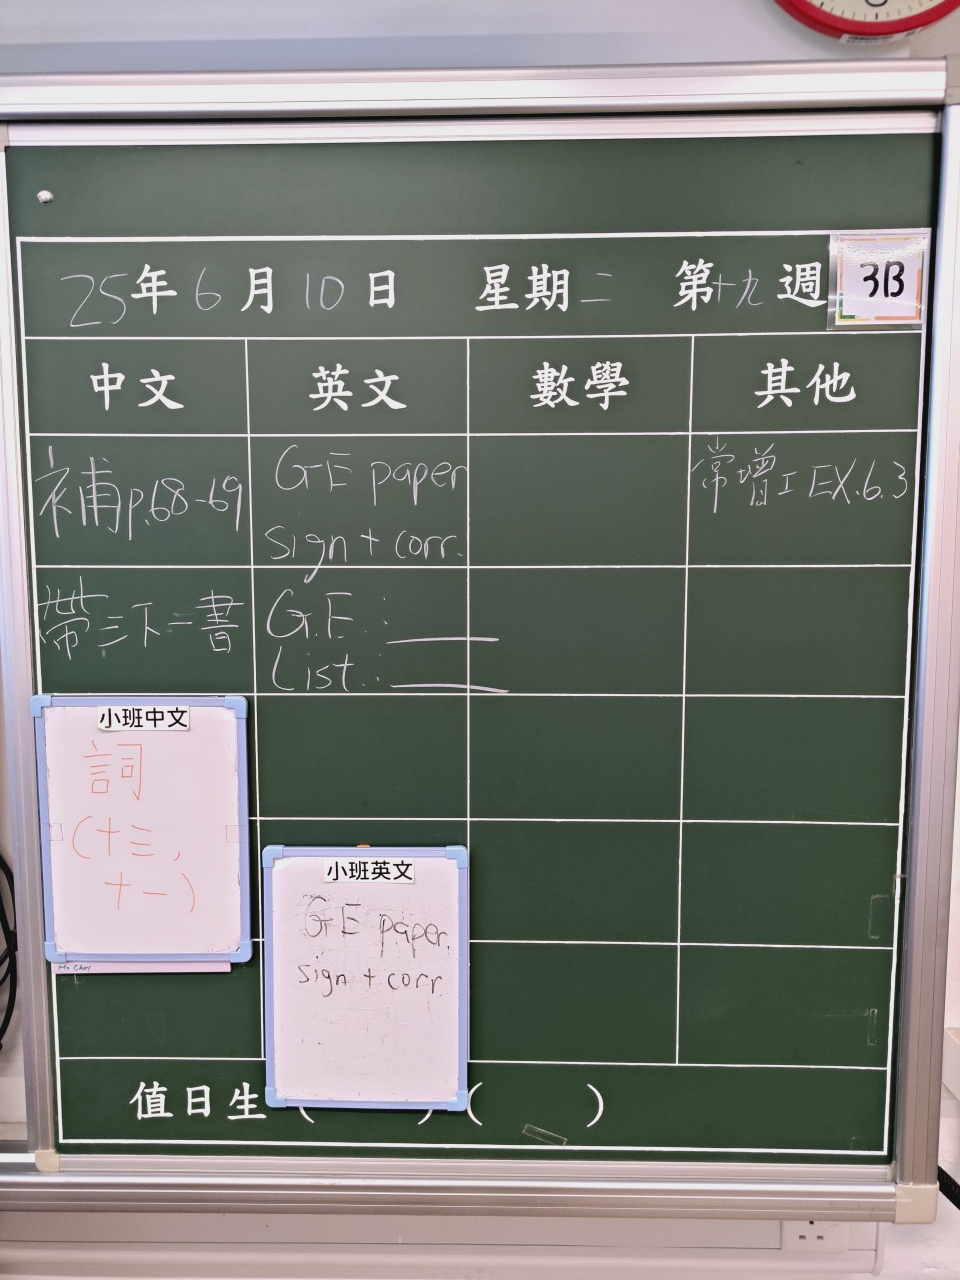 25年6月10日 星期二 第十九週 3B
中文 英文 數學 其他
補p.68-69
GE paper
sign + corr.
常增工 EX.6.3
帶三下一書
G.E.:
List.:
小班中文
詞
(十三,
十一)
小班英文
GE paper.
sign + corr.
值日生 ( ) ( )